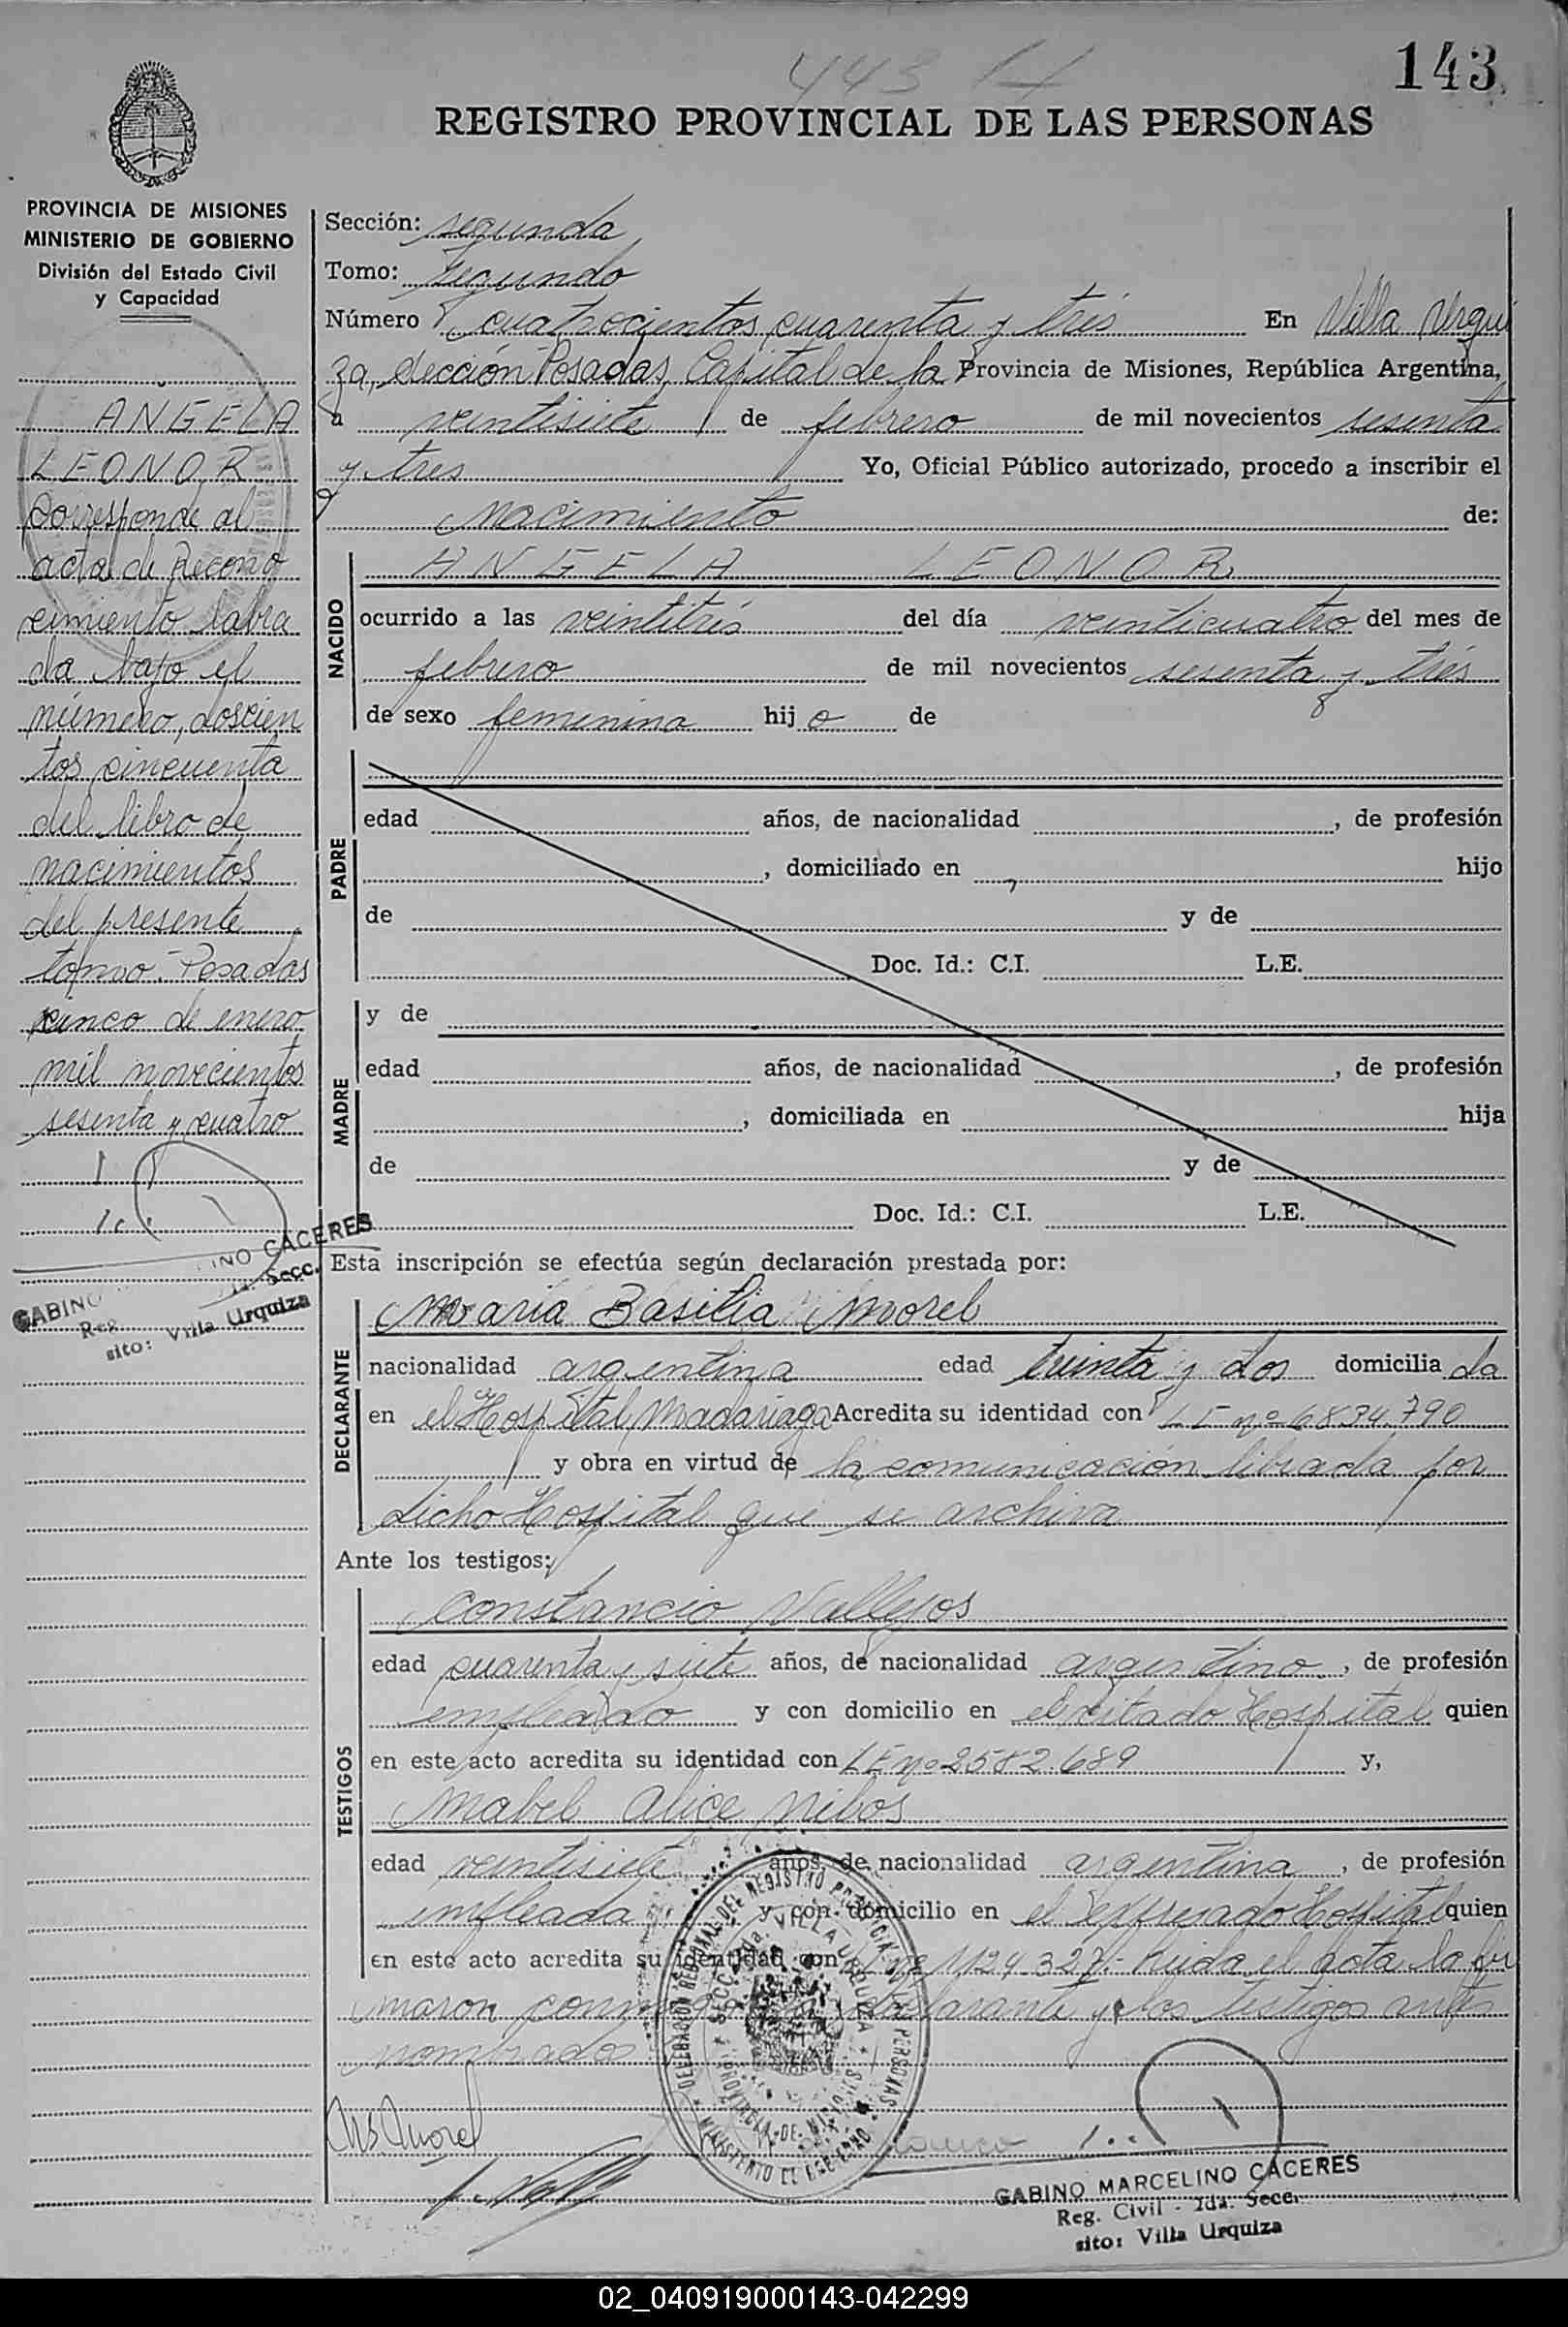 443
143
REGISTRO PROVINCIAL DE LAS PERSONAS
PROVINCIA DE MISIONES
MINISTERIO DE GOBIERNO
División del Estado Civil
y Capacidad
ANGELA
LEONOR
Corresponde al
acta de Recono
cimiento labra
da bajo el
número, doscien
tos cincuenta
del libro de
nacimientos
del presente
tomo. Posadas
cinco de enero
mil novecientos
sesenta y cuatro
GABINO CACERES
Reg. 2da. Secc.
sito: Villa Urquiza
Sección: segunda
Tomo: segundo
Número cuatrocientos cuarenta y trés En Villa Urqui
za, sección Posadas, Capital de la Provincia de Misiones, República Argentina,
a veintisiete de febrero de mil novecientos sesenta
y tres Yo, Oficial Público autorizado, procedo a inscribir el
nacimiento de:
NACIDO
ANGELA LEONOR
ocurrido a las veintitrés del día veinticuatro del mes de
febrero de mil novecientos sesenta y trés
de sexo femenina hij o de
PADRE
edad años, de nacionalidad , de profesión
, domiciliado en hijo
de y de
Doc. Id.: C.I. L.E.
MADRE
y de
edad años, de nacionalidad , de profesión
, domiciliada en hija
de y de
Doc. Id.: C.I. L.E.
Esta inscripción se efectúa según declaración prestada por:
DECLARANTE
María Basilia Morel
nacionalidad argentina edad treinta y dos domicilia da
en el Hospital Madariaga Acredita su identidad con L E nº 6834.790
y obra en virtud de la comunicación librada por
dicho Hospital que se archiva
Ante los testigos:
TESTIGOS
Constancio Vallejos
edad cuarenta y siete años, de nacionalidad argentino, de profesión
empleado y con domicilio en el citado Hospital quien
en este acto acredita su identidad con L E nº 2582.689 y,
Mabel Alice
edad veintisiete años, de nacionalidad argentina, de profesión
empleada y con domicilio en el expresado Hospital quien
en este acto acredita su identidad con nº 1124.327.- Leida el acta la fir
maron declarante y los testigos antes
nombrados
MB Morel
DELEGACION REGIONAL DEL REGISTRO PROVINCIAL DE LAS PERSONAS
SECC. 2da. VILLA URQUIZA
PROVINCIA DE MISIONES
MINISTERIO DE GOBIERNO
GABINO MARCELINO CACERES
Reg. Civil - 2da. Secc.
sito: Villa Urquiza
02_040919000143-042299